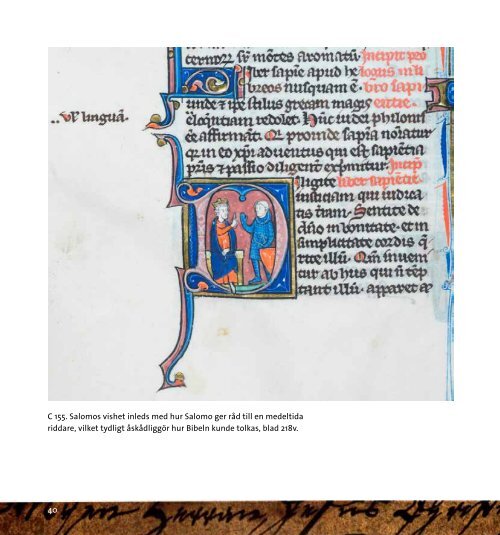 mōtes aromatū. Incipit pro
Iber sapīe apud he logus in li
breos nusquam ē. bro sapi
unde ⁊ ipe stilus grecam magis entie.
..linguā.
eloquītiam redolet. Hūc iudei philonis
ēe affirmāt. Qr proinde sapīa noīatur
qr in eo xp̄i aduentus qui est sapiētia
pr̄is ⁊ passio diligent exprimitur. Incip̄
Diligite liber sapiētie.
iusticiam qui iudica
tis t̄ram. Sentite de
dn̄o in bonitate. et in
simplicitate cordis q̄
rite illū. Qm̄ inueni
tur ab hus qui n̄ tēp
tant illū. apparet
C 155. Salomos vishet inleds med hur Salomo ger råd till en medeltida
riddare, vilket tydligt åskådliggör hur Bibeln kunde tolkas, blad 218v.
40
Herran Jesus